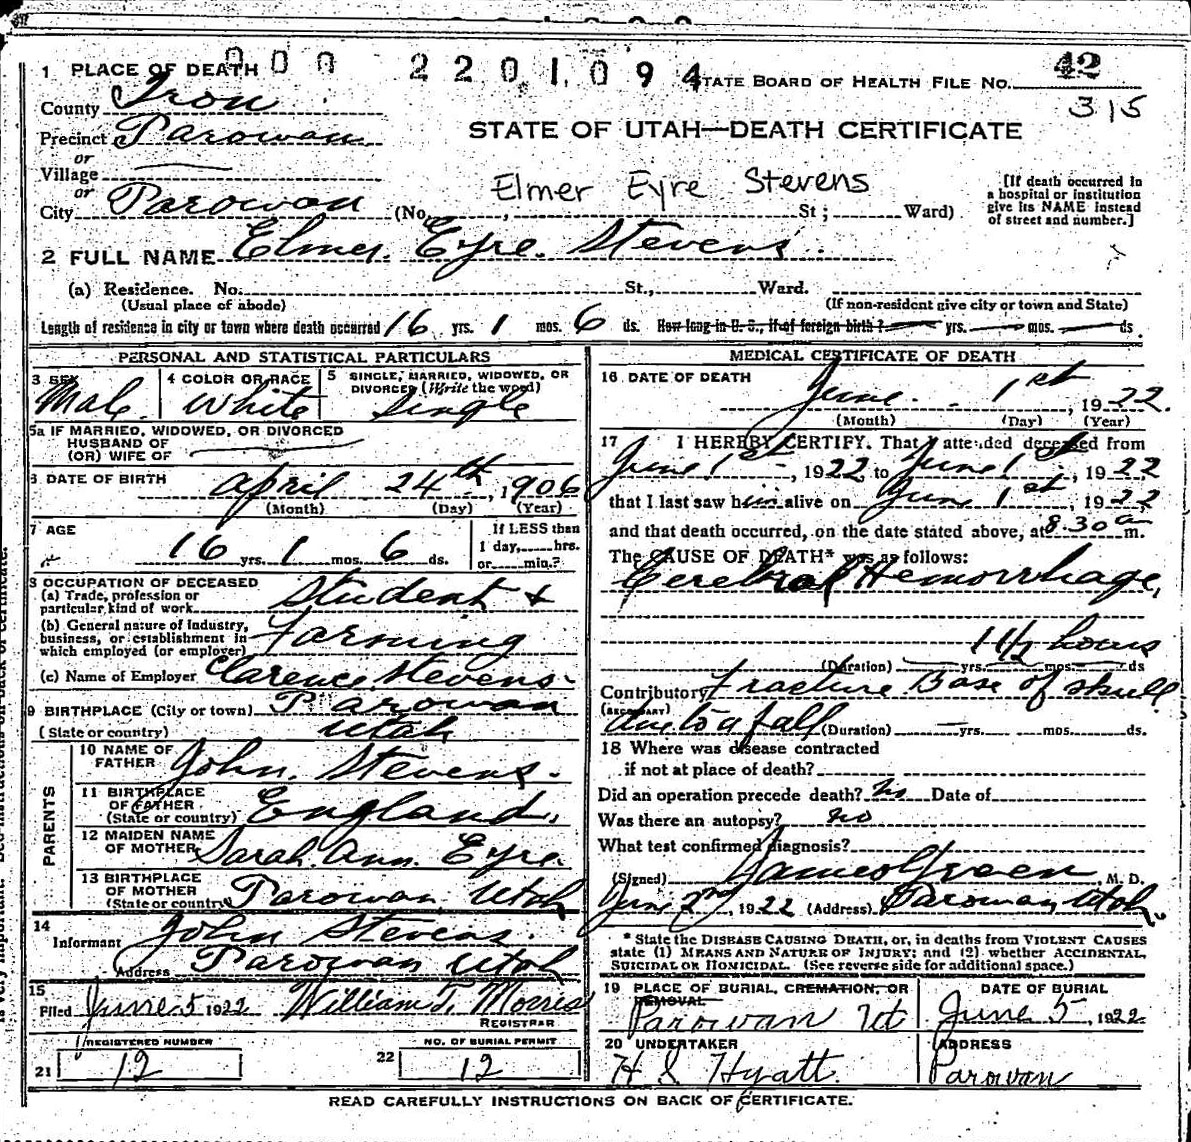 1 PLACE OF DEATH
000 2201094
STATE BOARD OF HEALTH FILE No. 42
315
County Iron
Precinct Parowan
or
Village
or
City Parowan (No. , St ; Ward)
STATE OF UTAH—DEATH CERTIFICATE
Elmer Eyre Stevens
[If death occurred in
a hospital or institution
give its NAME instead
of street and number.]
2 FULL NAME Elmer Eyre Stevens
(a) Residence. No. St., Ward.
(Usual place of abode) (If non-resident give city or town and State)
Length of residence in city or town where death occurred 16 yrs. 1 mos. 6 ds. How long in U. S., if of foreign birth? yrs. mos. ds.
PERSONAL AND STATISTICAL PARTICULARS
3 SEX
Male
4 COLOR OR RACE
White
5 SINGLE, MARRIED, WIDOWED, OR
DIVORCED (Write the word)
Single
5a IF MARRIED, WIDOWED, OR DIVORCED
HUSBAND OF
(OR) WIFE OF
6 DATE OF BIRTH
April 24th, 1906
(Month) (Day) (Year)
7 AGE
16 yrs. 1 mos. 6 ds.
If LESS than
1 day, hrs.
or min.?
8 OCCUPATION OF DECEASED
(a) Trade, profession or
particular kind of work Student &
(b) General nature of industry,
business, or establishment in
which employed (or employer) Farming
(c) Name of Employer Clarence Stevens
9 BIRTHPLACE (City or town) Parowan
(State or country) Utah
PARENTS
10 NAME OF
FATHER John Stevens.
11 BIRTHPLACE
OF FATHER
(State or country) England.
12 MAIDEN NAME
OF MOTHER Sarah Ann Eyre.
13 BIRTHPLACE
OF MOTHER
(State or country) Parowan Utah
14
Informant John Stevens.
Address Parowan Utah
15
Filed June 5 1922 William T. Morris
REGISTRAR
REGISTERED NUMBER
21 12
NO. OF BURIAL PERMIT
22 12
MEDICAL CERTIFICATE OF DEATH
16 DATE OF DEATH
June 1st, 1922.
(Month) (Day) (Year)
17 I HEREBY CERTIFY. That I attended deceased from
June 1st, 1922 to June 1st, 1922
that I last saw him alive on June 1st, 1922
and that death occurred, on the date stated above, at 8.30 a m.
The CAUSE OF DEATH* was as follows:
Cerebral Hemorrhage,
11½ hours
(Duration) yrs. mos. ds
Contributory Fracture Base of skull
(SECONDARY)
due to a fall (Duration) yrs. mos. ds.
18 Where was disease contracted
if not at place of death?
Did an operation precede death? No Date of
Was there an autopsy? no
What test confirmed diagnosis?
(Signed) James Green, M. D.
June 2nd, 1922 (Address) Parowan Utah
* State the DISEASE CAUSING DEATH, or, in deaths from VIOLENT CAUSES
state (1) MEANS AND NATURE OF INJURY; and (2) whether ACCIDENTAL,
SUICIDAL OR HOMICIDAL. (See reverse side for additional space.)
19 PLACE OF BURIAL, CREMATION, OR
REMOVAL
Parowan Ut
DATE OF BURIAL
June 5, 1922
20 UNDERTAKER
H S Hyatt.
ADDRESS
Parowan
READ CAREFULLY INSTRUCTIONS ON BACK OF CERTIFICATE.